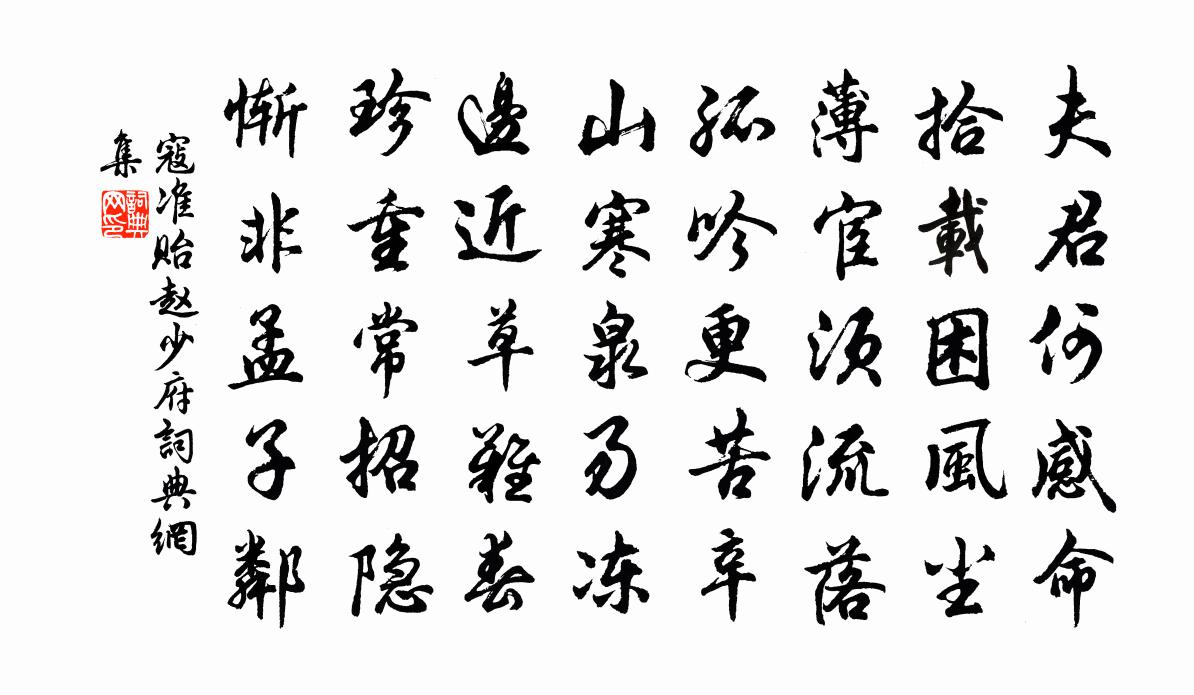 夫君何感命
拾載困風尘
薄宦须流落
孤吟更苦辛
山寒泉易冻
邊近草難春
珍重常招隐
慚非孟子鄰
寇准贻赵少府詞典網
集
詞典
网印